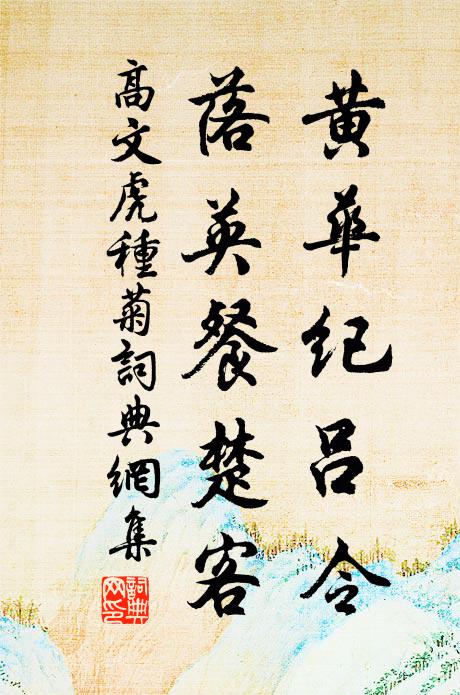 黄華紀呂令
落英餐楚客
高文虎種菊詞典網集